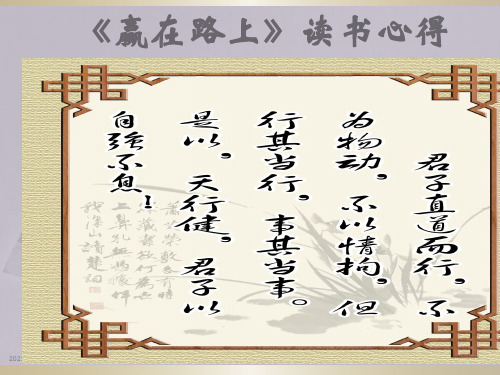 《赢在路上》读书心得
君子直道而行，不
为物动，不以情拘，但
行其当行，事其当事。
是以，天行健，君子以
自强不息！
202